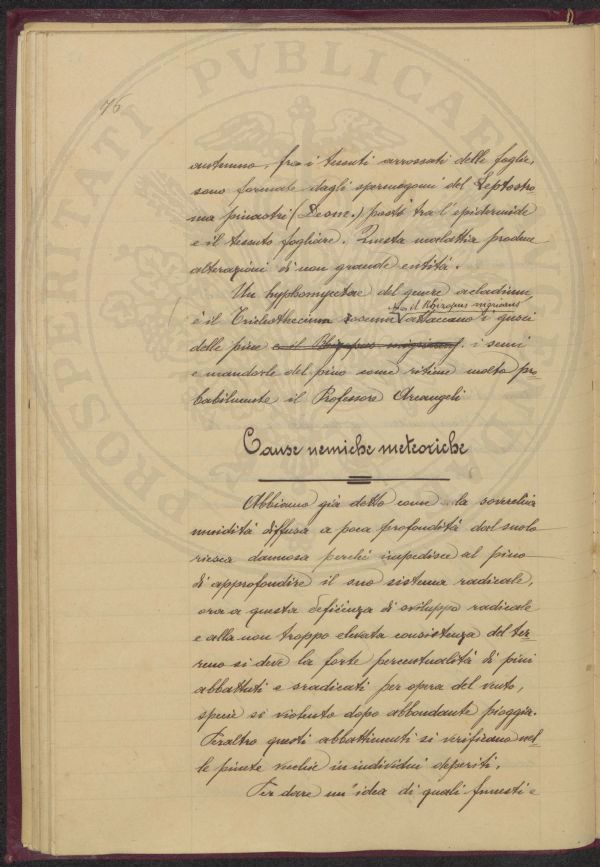 76
PROSPERITATI PVBLICAE
autunno, fra i tessuti arrossati delle foglie,
sono formate dagli spermogoni del Leptostro
ma pinastri (Desm.) posti tra l'epidermide
e il tessuto fogliare. Questa malattia produce
alterazioni di non grande entità.
Un hyphomycetae del genere acladium
è il Tricleothecium roseum attaccano i gusci
ed il Rhizopus nigricans
delle pine e il Rhizopus nigricans. i semi
e mandorle del pino come ritiene molto pro
babilmente il Professore Arcangeli
Cause nemiche meteoriche
Abbiamo già detto come la soverchia
umidità diffusa a poca profondità dal suolo
riesca dannosa perchè impedisce al pino
di approfondire il suo sistema radicale,
ora a questa deficienza di sviluppo radicale
e alla non troppo elevata consistenza del ter=
reno si deve la forte percentualità di pini
abbattuti e sradicati per opera del vento,
specie se violento dopo abbondante pioggia.
Peraltro questi abbattimenti si verificano nel=
le pinete vecchie in individui deperiti.
Per dare un'idea di quali funesti e